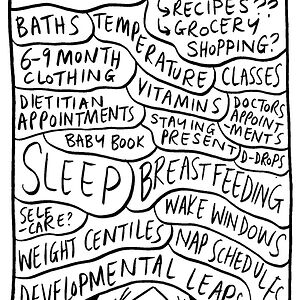 ↳RECIPES??
↳GROCERY
SHOPPING?
BATHS
TEMPERATURE
6-9 MONTH
CLOTHING
CLASSES
VITAMINS
DIETITIAN
APPOINTMENTS
DOCTORS
APPOINT
-MENTS
STAYING
PRESENT
BABY BOOK
D-DROPS
SLEEP
BREASTFEEDING
SELF
-CARE?
WAKE WINDOWS
WEIGHT CENTILES
NAP SCHEDULES
DEVELOPMENTAL LEAPS